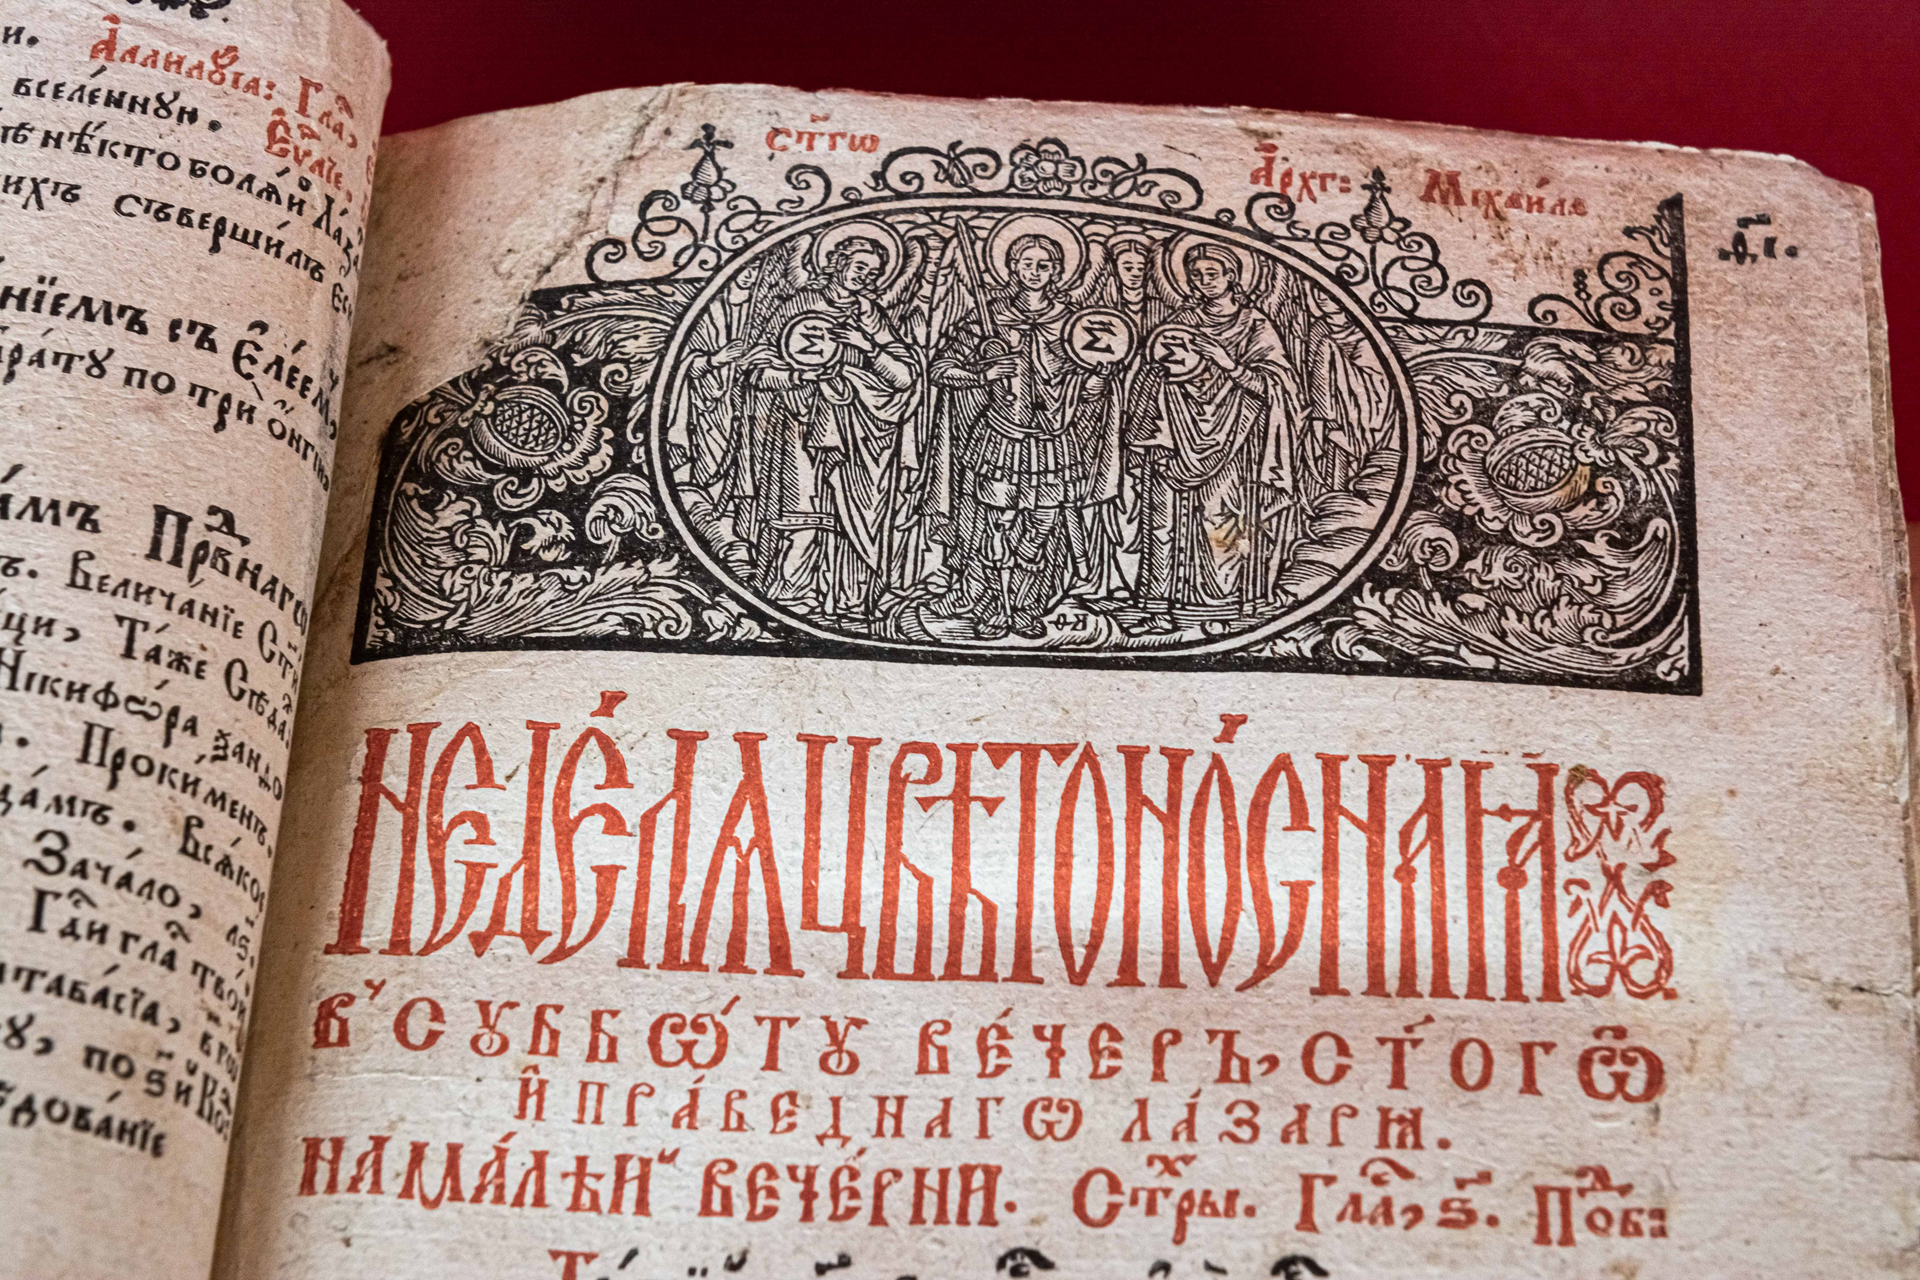 и. Аллилꙋ́їа: Гла,
вселе́ннꙋю. Єѵⷢ҇лїе,
нѣ́кто болѧ́й Ла́за
ихъ съверши́лъ єс
нїемъ съ Єле́ем,
бра́тꙋ по три
а́мъ Прⷣѣнагѡ
ъ. Величанїе Ст҃и
щи, Та́же Сѣда̀.
Никифѡ́ра ꙁандо
. Проки́менъ,
да́мъ. Всѧ́кое
Зача́ло, л҃ѕ.
Гдⷭ҇и гла твои
таба́сїа,
ꙋ, по ѕ҃й
дова́нїе
ст҃гѡ
А҆рхг: Міхаи́ла
Ѳ҃К
НЕДѢ́ЛѦ ЦВѢТОНО́СНАѦ
в̾ сꙋббѡ́тꙋ ве́черъ, ст҃огѡ
и҆ пра́веднагѡ ла́зарѧ.
на ма́лѣй вече́рни. Стⷯры. Гла̀, ѕ҃. Поⷣб: